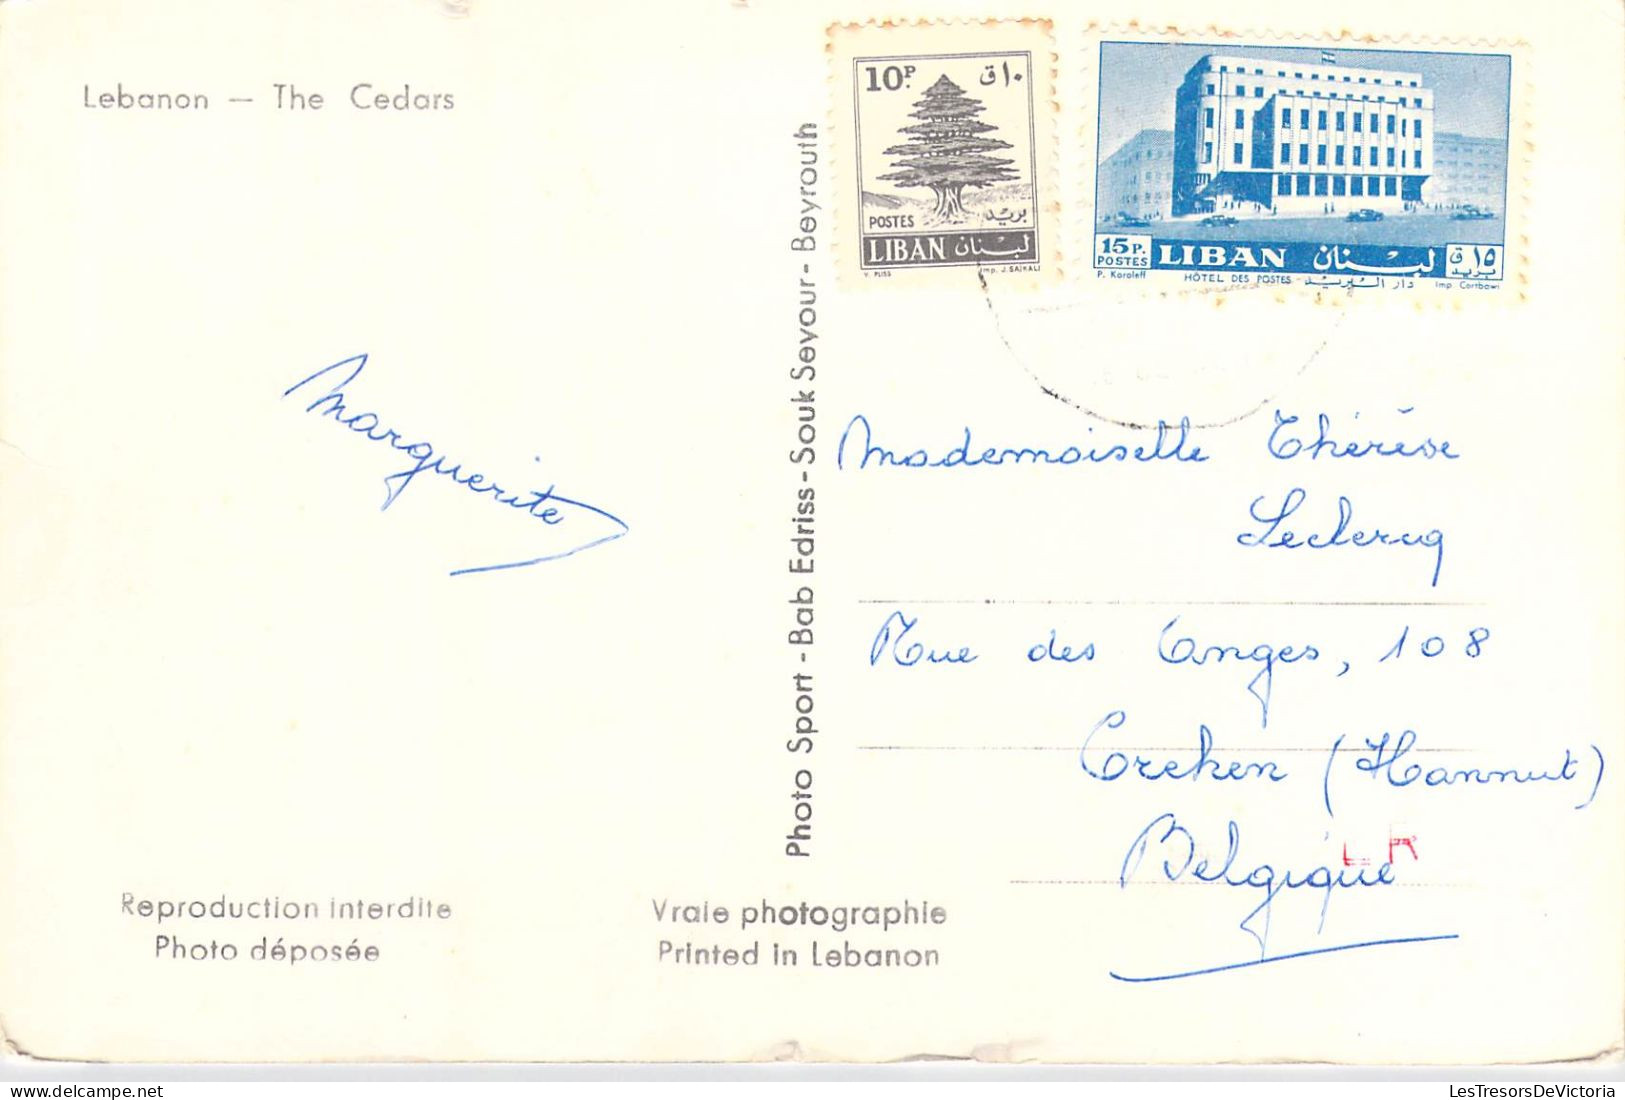 Lebanon – The Cedars
10 P.
١٠ ق
POSTES
بريد
LIBAN لبنان
V. PLISS
Imp. J. SAIKALI
15 P.
POSTES
LIBAN لبنان
١٥ ق
بريد
P. Koroleff
HÔTEL DES POSTES - دار البريد
Imp Cortbawi
Marguerite
Photo Sport - Bab Edriss - Souk Seyour - Beyrouth
Mademoiselle Thérèse
Leclercq
Rue des Anges, 108
Crehen (Hannut)
Belgique
L R
Reproduction interdite
Photo déposée
Vraie photographie
Printed in Lebanon
LesTresorsDeVictoria